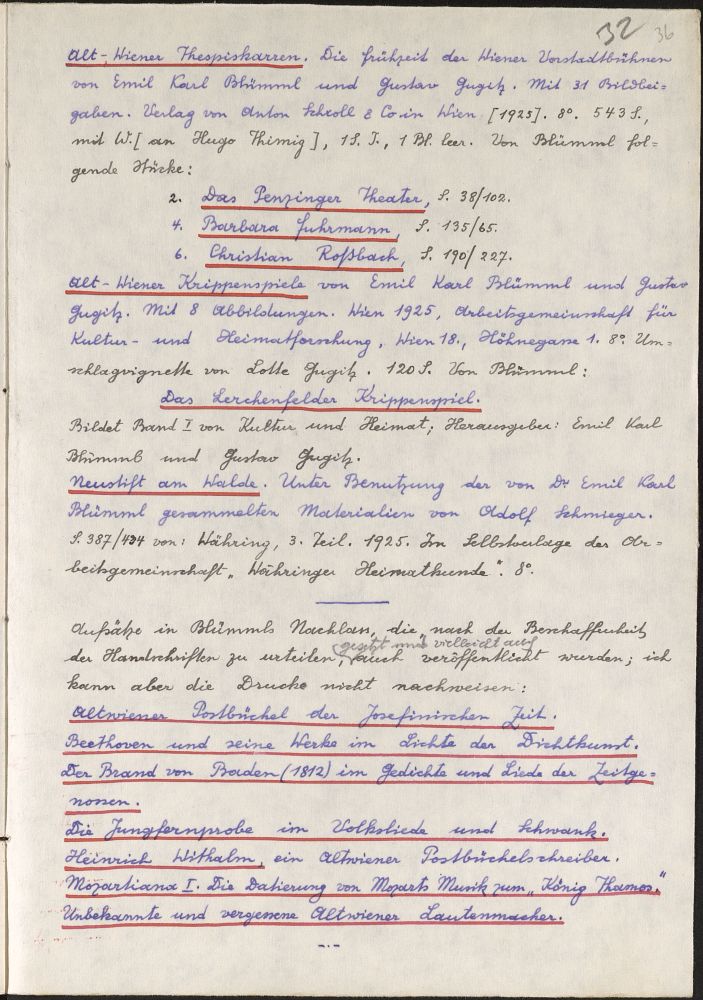 32 36
Alt-Wiener Thespiskarren. Die Frühzeit der Wiener Vorstadtbühnen
von Emil Karl Blümml und Gustav Gugitz. Mit 31 Bildbei=
gaben. Verlag von Anton Schroll & Co in Wien [1925]. 8°. 543 S.,
mit W.[an Hugo Thimig], 1 S. I., 1 Bl. leer. Von Blümml fol=
gende Stücke:
2. Das Penzinger Theater, S. 38/102.
4. Barbara Fuhrmann, S. 135/65.
6. Christian Roßbach, S. 190/227.
Alt-Wiener Krippenspiele von Emil Karl Blümml und Gustav
Gugitz. Mit 8 Abbildungen. Wien 1925, Arbeitsgemeinschaft für
Kultur- und Heimatforschung, Wien 18., Höhnegasse 1. 8°. Um=
schlagvignette von Lotte Gugitz. 120 S. Von Blümml:
Das Lerchenfelder Krippenspiel.
Bildet Band I von Kultur und Heimat; Herausgeber: Emil Karl
Blümml und Gustav Gugitz.
Neustift am Walde. Unter Benutzung der von Dr Emil Karl
Blümml gesammelten Materialien von Adolf Schmieger.
S. 387/434 von: Währing, 3. Teil. 1925. Im Selbstverlage der Ar=
beitsgemeinschaft „Währinger Heimatkunde". 8°.
Aufsätze in Blümmls Nachlass, die, nach der Beschaffenheit
gesetzt und vielleicht auch
der Handschriften zu urteilen, auch veröffentlicht wurden; ich
kann aber die Drucke nicht nachweisen:
Altwiener Postbüchel der Josefinischen Zeit.
Beethoven und seine Werke im Lichte der Dichtkunst.
Der Brand von Baden (1812) im Gedichte und Liede der Zeitge=
nossen.
Die Jungfernprobe im Volksliede und Schwank.
Heinrich Withalm, ein Altwiener Postbüchelschreiber.
Mozartiana I. Die Datierung von Mozarts Musik zum „König Thamos."
Unbekannte und vergessene Altwiener Lautenmacher.